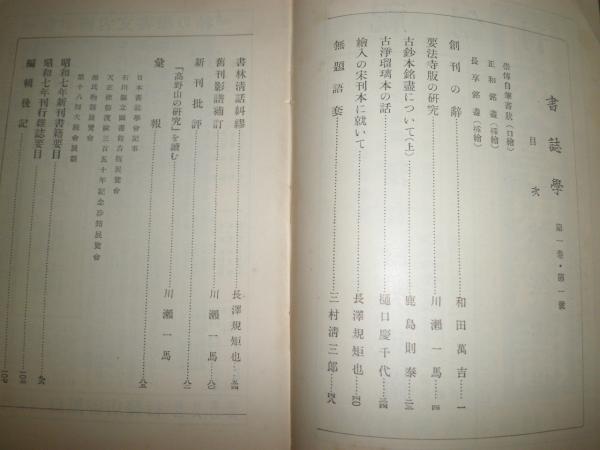 書誌學 第一卷・第一號
目次
崇傳自筆書狀（口繪）
正和銘盡（揷繪）
長享銘盡（揷繪）
創刊の辭……和田萬吉…一
要法寺版の研究……川瀬一馬…四
古鈔本銘盡について（上）……鹿島則泰…三
古淨瑠璃本の話……樋口慶千代…
繪入の宋刊本に就いて……長澤規矩也…四〇
無題語套……三村淸三郎…四八
書林淸話糾繆……長澤規矩也…
舊刊影譜補訂……川瀬一馬…八〇
新刊批評
「高野山の硏究」を讀む……川瀬一馬…八二
彙報……八五
日本書誌學會記事
石川縣立圖書館古版展覽會
天正使節渡歐三百五十年記念珍籍展覽會
源氏物語展覽會
第十八囘大藏會展觀
昭和七年新刊書籍要目
昭和七年刊行雜誌要目
編輯後記……一〇七